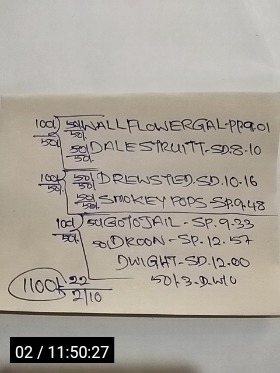 100/ 50/ WALLFLOWERGAL-PP.9.01
50/. 50/.
50/ DALESTRUITT-SD.8.10
50/.
100/ 50/ DREWSTIED.SD.10.16
50/. 50/.
50/ SMOKEY POPS-SP.9.48
50/.
100/ 50/ GOTOJAIL-SP.9.33
50/.
50/ DROON-SP.12.57
DWIGHT-SD.12.00
50/.3.DW10
1100/. 22
2/10
02 / 11:50:27